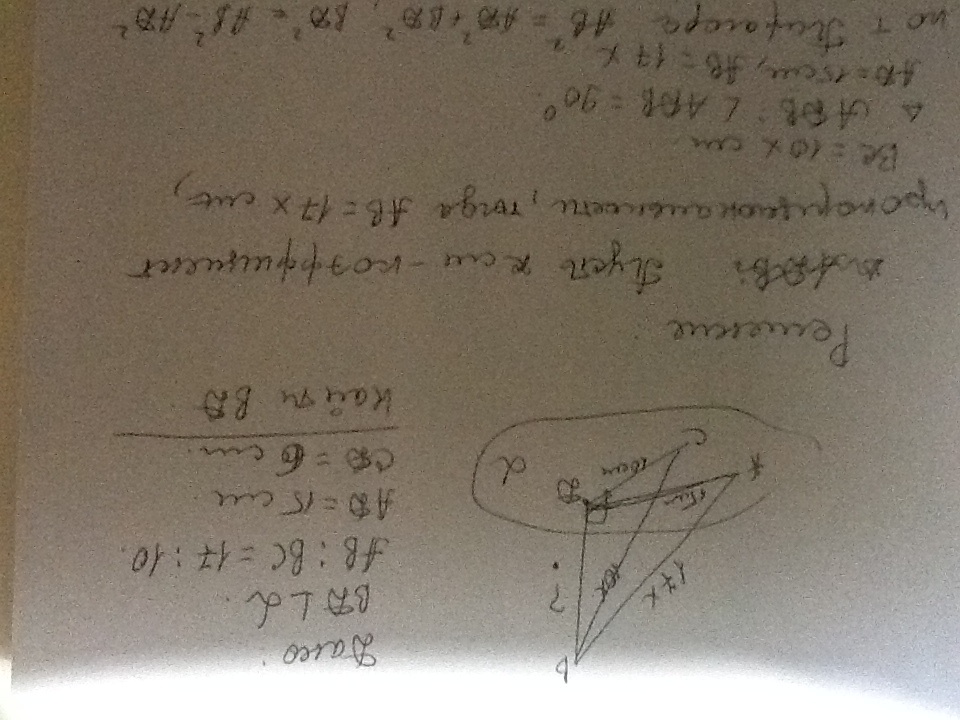 Дано:
BD ⊥ α.
AB : BC = 17 : 10.
AD = 15 cm
CD = 6 cm.
Найти BD.
B
?
17x
10x
D
15cm
A
C
α
Решение
ΔADB: Пусть x см - коэффициент
пропорциональности, тогда AB = 17x см,
BC = 10x см.
Δ ADB: ∠ ADB = 90°
AD = 15см, AB = 17x
по т Пифагора AB² = AD² + BD², BD² = AB² - AD²